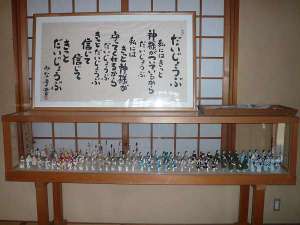 だいじょうぶ
私にはきっと
神様がついているから
だいじょうぶ
私には
きっと神様が
守ってくれるから
きっとだいじょうぶ
信じて
信じて
きっと
だいじょうぶ